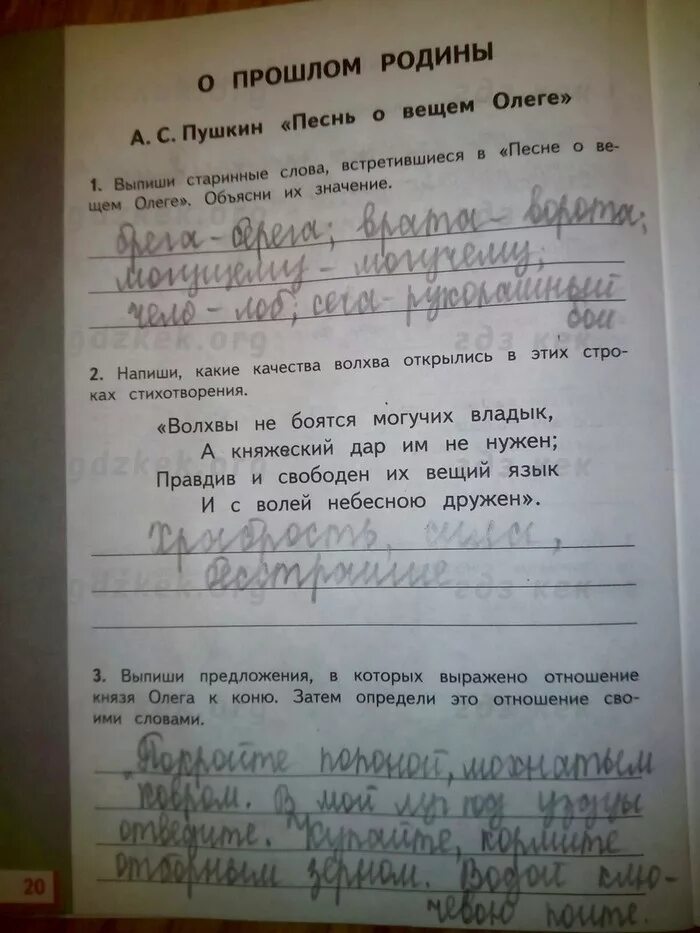 О ПРОШЛОМ РОДИНЫ
А. С. Пушкин «Песнь о вещем Олеге»
1. Выпиши старинные слова, встретившиеся в «Песне о ве-
щем Олеге». Объясни их значение.
брега – берега; врата – ворота;
могущему – могучему;
чело – лоб; сеча – рукопашный
бой
gdzkek.org
гдз кек
2. Напиши, какие качества волхва открылись в этих стро-
ках стихотворения.
«Волхвы не боятся могучих владык,
А княжеский дар им не нужен;
Правдив и свободен их вещий язык
И с волей небесною дружен».
gdzkek.org
гдз кек
Храбрость, сила,
бесстрашие
gdzkek.org
гдз кек
3. Выпиши предложения, в которых выражено отношение
князя Олега к коню. Затем определи это отношение сво-
ими словами.
„Покройте попоной, мохнатым
ковром. В мой луг под уздцы
отведите. Купайте, кормите
отборным зерном. Водой клю-
чевою поите.
20